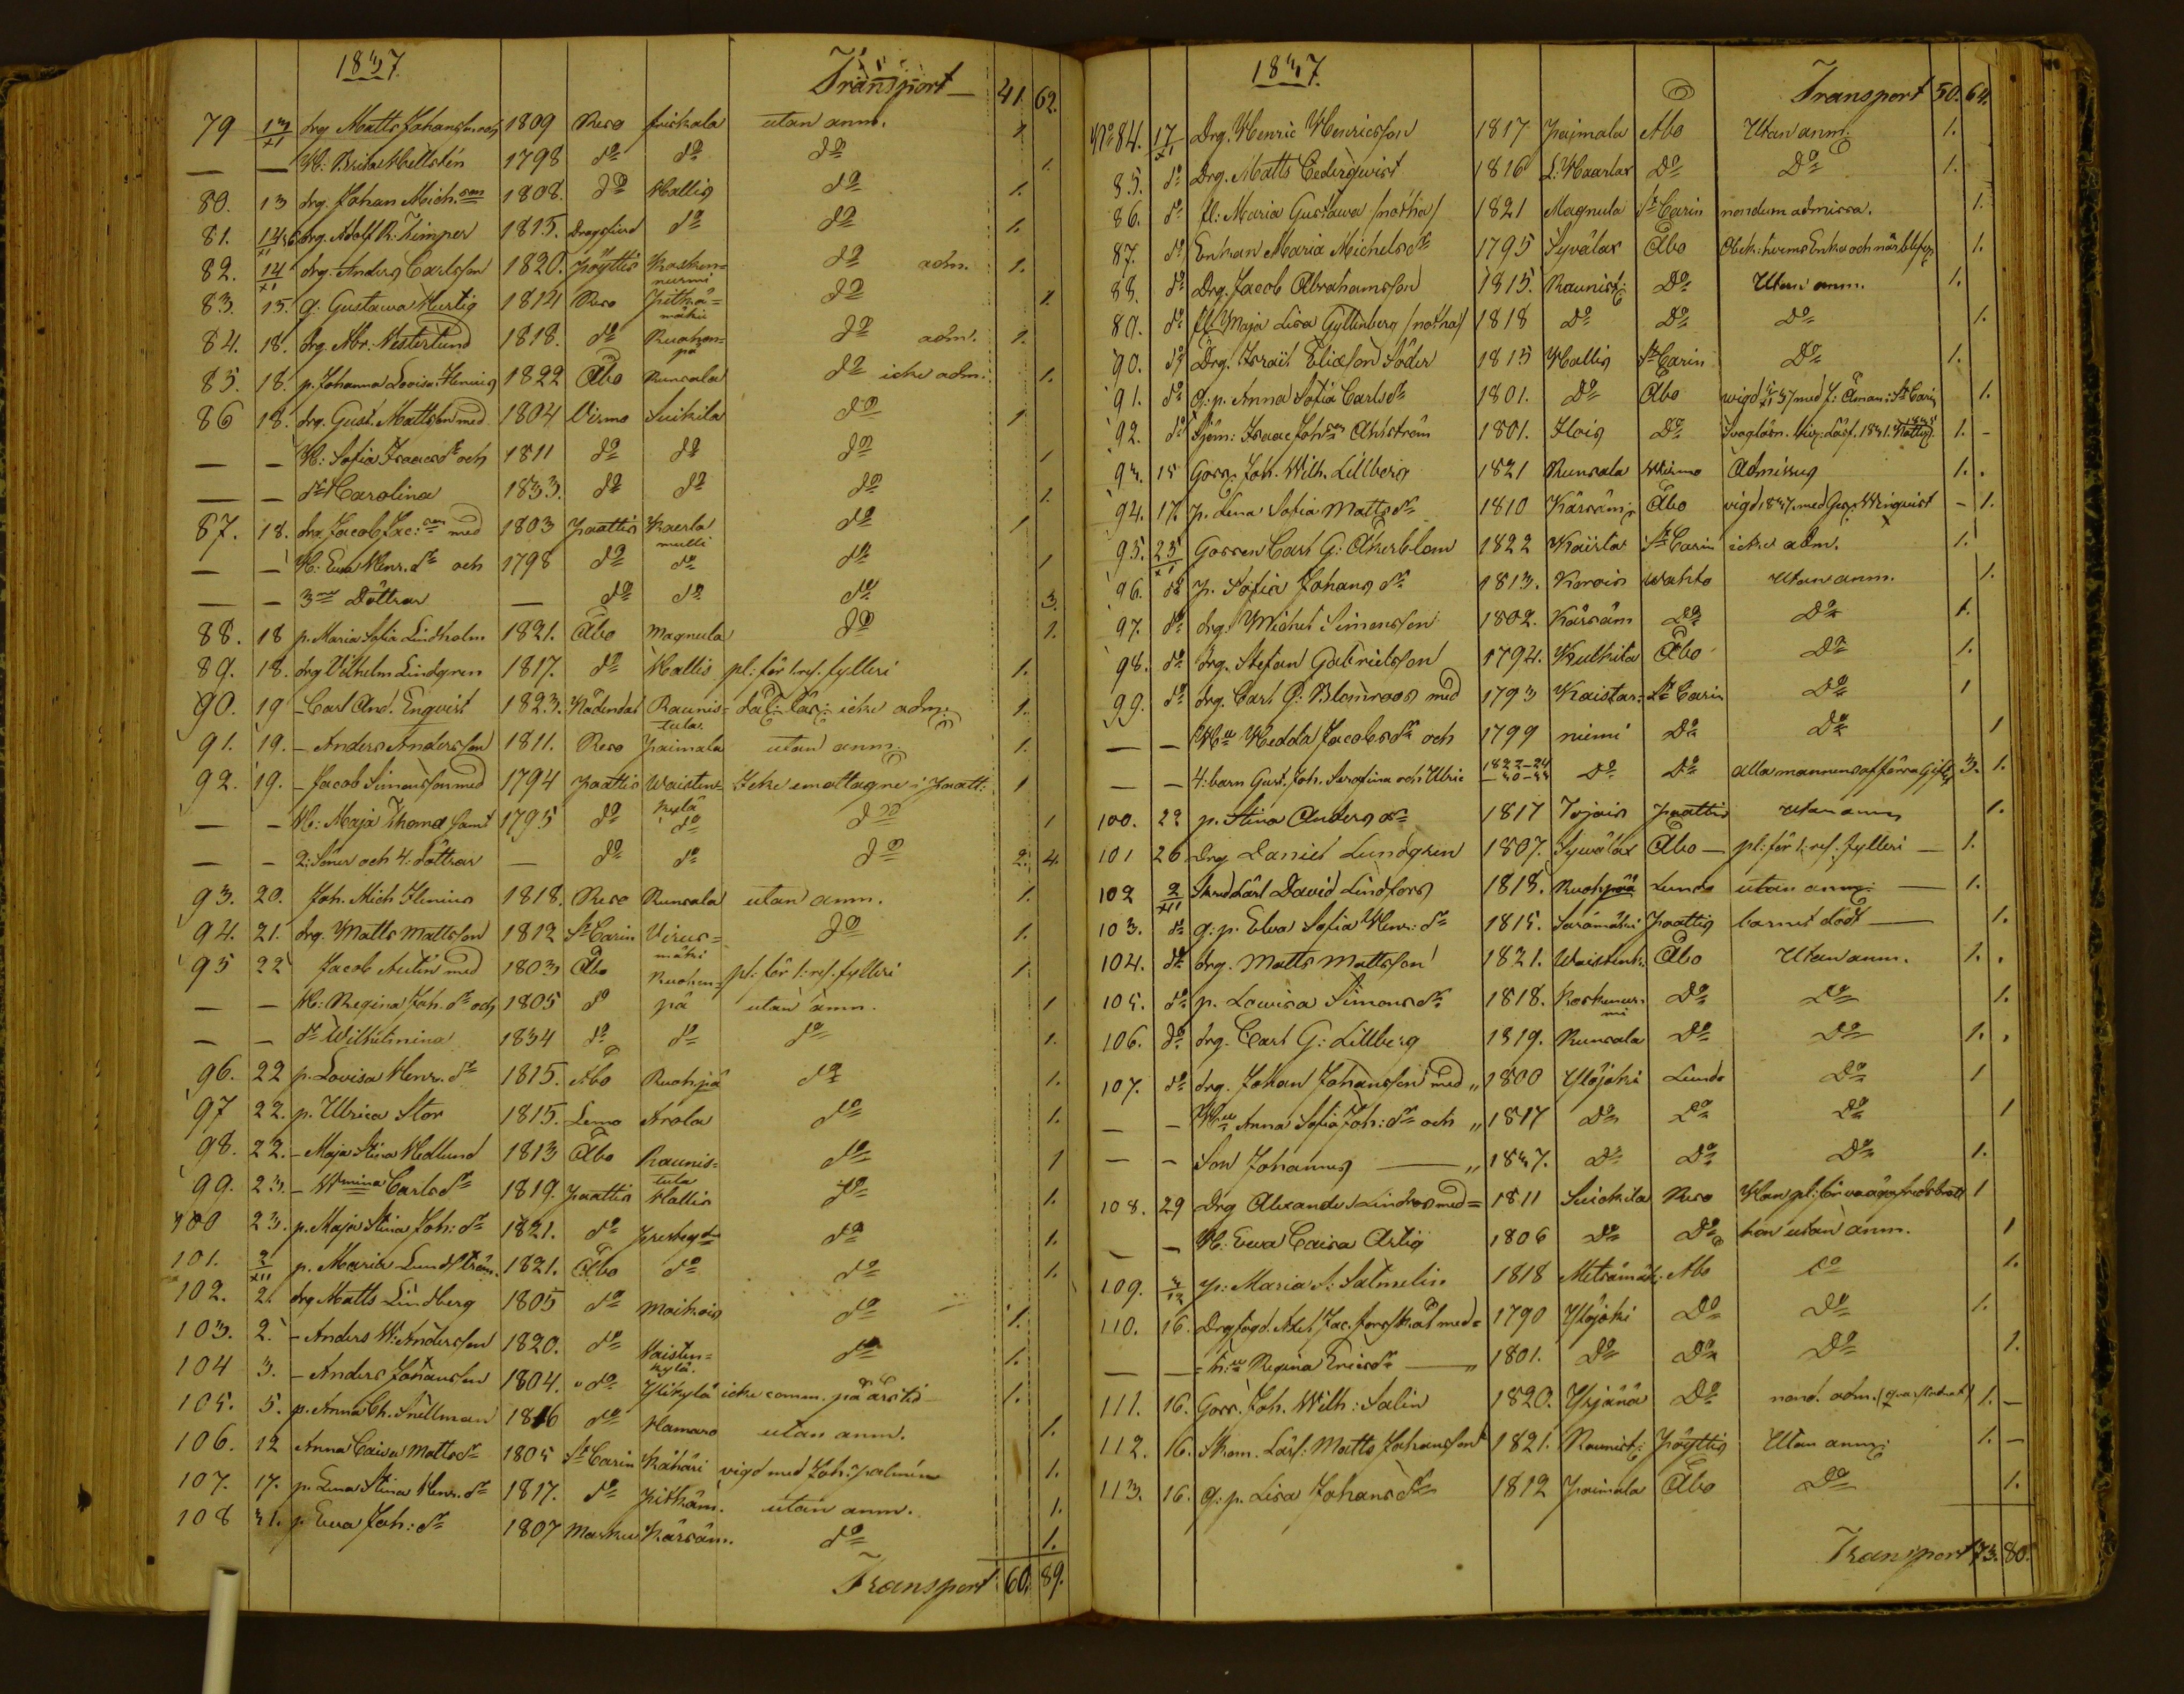 1837.
Transport — 41. 62.
79 13/XI drg Matts Johansson och 1809 Reso friskala utan anm. 1.
— — H: Brita Hellstén 1798 do do do 1.
80. 13 drg. Johan Mich.son 1808. do Hallis do 1.
81. 14 drg. Adolf R. Zimper 1815. Dragsfierd do do 1.
82. 14/XI drg. Anders Carlsson 1820. Pöyttis Kasken= nurmi do adm. 1.
83. 15. g: Gustawa Hurtig 1814 Reso Pitkä= mäki do 1.
84. 18. drg. Abr. Westerlund 1818. do Ruohon= pä do adm. 1.
85. 18. p. Johanna Lovisa Henius 1822 Åbo Runsala do icke adm. 1.
86 18. drg. Gust. Mattsson med 1804 Virmo Suikila do 1
— — H: Sofia Isaacs dr och 1811 do do do 1
— — dr Carolina 1833. do do do 1.
87. 18. drg Jacob Jac:son med 1803 Paattis Kaerla multi do 1
— — H: Ewa Henr. dr och 1798 do do do 1
— — 3ne Döttrar — do do do 3.
88. 18 p. Maria Sofia Lindholm 1821. Åbo Magnula do 1.
89. 18. drg Vilhelm Lindgren 1817. do Hallis pl: för 1. res. fylleri 1.
90. 19 - Carl And. Engvist 1823. Nådendal Raunis= tula icke adm. 1.
91. 19. - Anders Andersson 1811. Reso Paimala utan anm. 1.
92. 19. - Jacob Simonsson med 1794 Paattis Waisten= kylä Icke emottagne i Paatt: 1
— — H: Maja Thoma samt 1795 do do do 1
— — 2: Söner och 4: döttrar — do do do 2. 4.
93. 20. Joh. Mich Henius 1818. Reso Runsala utan anm. 1.
94. 21. drg. Matts Mattsson 1812 St Carin Virus= mäki do 1.
95 22 Jacob Autin med 1803 Åbo Ruohon= pl: för 1: res. fylleri 1
— — H: Regina Joh. dr och 1805 do pä utan anm. 1
— — dr Wilhelmina 1834 do do do 1.
96. 22 p. Lovisa Henr. dr 1815. Åbo Ruohpä do 1.
97 22. p. Ulrica Stor 1815. Lemo Arola do 1.
98. 22. - Maja Stina Hedlund 1813 Åbo Raunis= tula do 1
99. 23. - Wmina Carls dr 1819. Paattis Hallis do 1.
100 23. p. Maja Stina Joh: dr 1821. do Prestegd do 1.
101. 2/XII p. Maria Lundström. 1821. Åbo do do 1.
102. 2. drg Matts Lindberg 1805 do Maikois do 1.
103. 2. - Anders W: Andersson 1820. do Vaisten= kylä do 1.
104 3. - Anders Johansson 1804. do Ylikylä icke comm. på års tid 1.
105. 5. p. Anna Ch. Snellman 1816 do Hamaro utan anm. 1.
106. 12 Anna Caisa Matts dr 1805 St Carin Kähäri vigd med Joh: Palmén 1.
107. 17. p. Lena Stina Henr. dr 1817. do Pitkäm. utan anm. 1.
108 31. p. Ewa Joh: dr 1807 Masku Kärsäm. do 1.
Transport 60. 89.
1837.
Transport 50. 64.
No 84. 17/XI Drg. Henric Henricsson 1817 Pajmala Åbo Utan anm. 1.
85. do Drg. Matts Cederqwist 1816 L: Haarlax Do Do 1.
86. do fl: Maria Gustawa /notha/ 1821 Magnula St Carin nondum admissa. 1.
87. do Enkan Maria Michels dr 1795 Syvälax Åbo 1.
88. do Drg. Jacob Abrahamsson 1815. Raunist: Do Utan anm. 1.
89. do fl: Maja Lisa Gyllenberg /notha/ 1818 Do Do Do 1.
90. do Drg. Israel Eliæson Söder 1815 Hallis St Carin Do 1.
91. do g: p. Anna Sofia Carls dr 1801. Do Åbo 1.
92. do Sjöm: Isaac Joh:son Ahlström 1801. Ilois Do 1. -
93. 15 Goss. Joh. Wilh. Lillberg 1821 Runsala Wirmo Admissus 1.
94. 17. p. Lena Sofia Matts dr 1810 Kärsäm: Åbo vigd 1837. med Winqwist - 1.
95. 25/XI Gossen Carl G: Åkerblom 1822 Kairla St Carin icke adm. 1.
96. do p. Sofia Johans dr 1813. Korois Wahto Utan anm. 1.
97. do drg. Michel Simonsson 1802. Kärsäm Do Do 1.
98. do drg. Stefan Gabrielsson 1794. Kulkila Åbo Do 1.
99. do drg. Carl G: Blomroos med 1793 Kaistar= St Carin Do 1
— — H:u Hedda Jacobs dr och 1799 niemi Do Do 1
— — 4: barn Gust. Joh. Serafina och Ulric 1822-24 Do Do alla mannens af förra Gifte 3. 1.
100. 22 p. Stina Anders dr 1817 Tojais Paattis Utan anm. 1.
101 26 drg Daniel Lundgren 1807. Syvälax Åbo — pl: för 1: res. fylleri — 1.
102 2/XII David Lindfors 1818. Ruohpää Lundo utan anm. — 1.
103. do g: p. Elsa Sofia Henr: dr 1815. Särämäki Paattis barnet dödt — 1.
104. do drg. Matts Mattsson 1821. Waistenk: Åbo Utan anm. 1.
105. do p. Lowisa Simons dr 1818. Koskenur= mi Do Do 1.
106. do drg. Carl G: Lillberg 1819. Runsala Do Do 1.
107. do drg. Johan Johansson med „ 1800 Yläjoki Lundo Do 1
— — H:u Anna Sofia Joh: dr och „ 1817 Do Do Do 1
— — Son Johannes — „ 1837. Do Do Do 1.
108. 29 Drg Alexander Lindroos med = 1811 Suickila Reso Han pl: för 1
— — H: Ewa Caisa Artig 1806 Do Do hon utan anm. 1
109. 3/12 p: Maria S: Salmelin 1818 Metsämäk: Åbo Do 1.
110. 16. Drg fogd. Axel Jac. med = 1790 Yläjoki Do Do 1.
— — H:u Regina Erics dr — „ 1801. Do Do Do 1.
111. 16. Goss. Joh. Wilh: Salin 1820. Do nond. adm. 1. —
112. 16. Skom. Lärl: Matts Johansson 1821. Raunist: Pöyttis Utan anm. 1. —
113. 16. g: p. Lisa Johans dr 1812 Paimala Åbo Do 1.
Transport 73. 80.